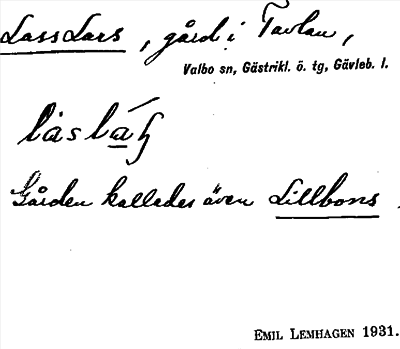 LassLars, gård i Tavlan,
Valbo sn, Gästrikl. ö. tg, Gävleb. l.
Gården kallades även Lillbons.
EMIL LEMHAGEN 1931.